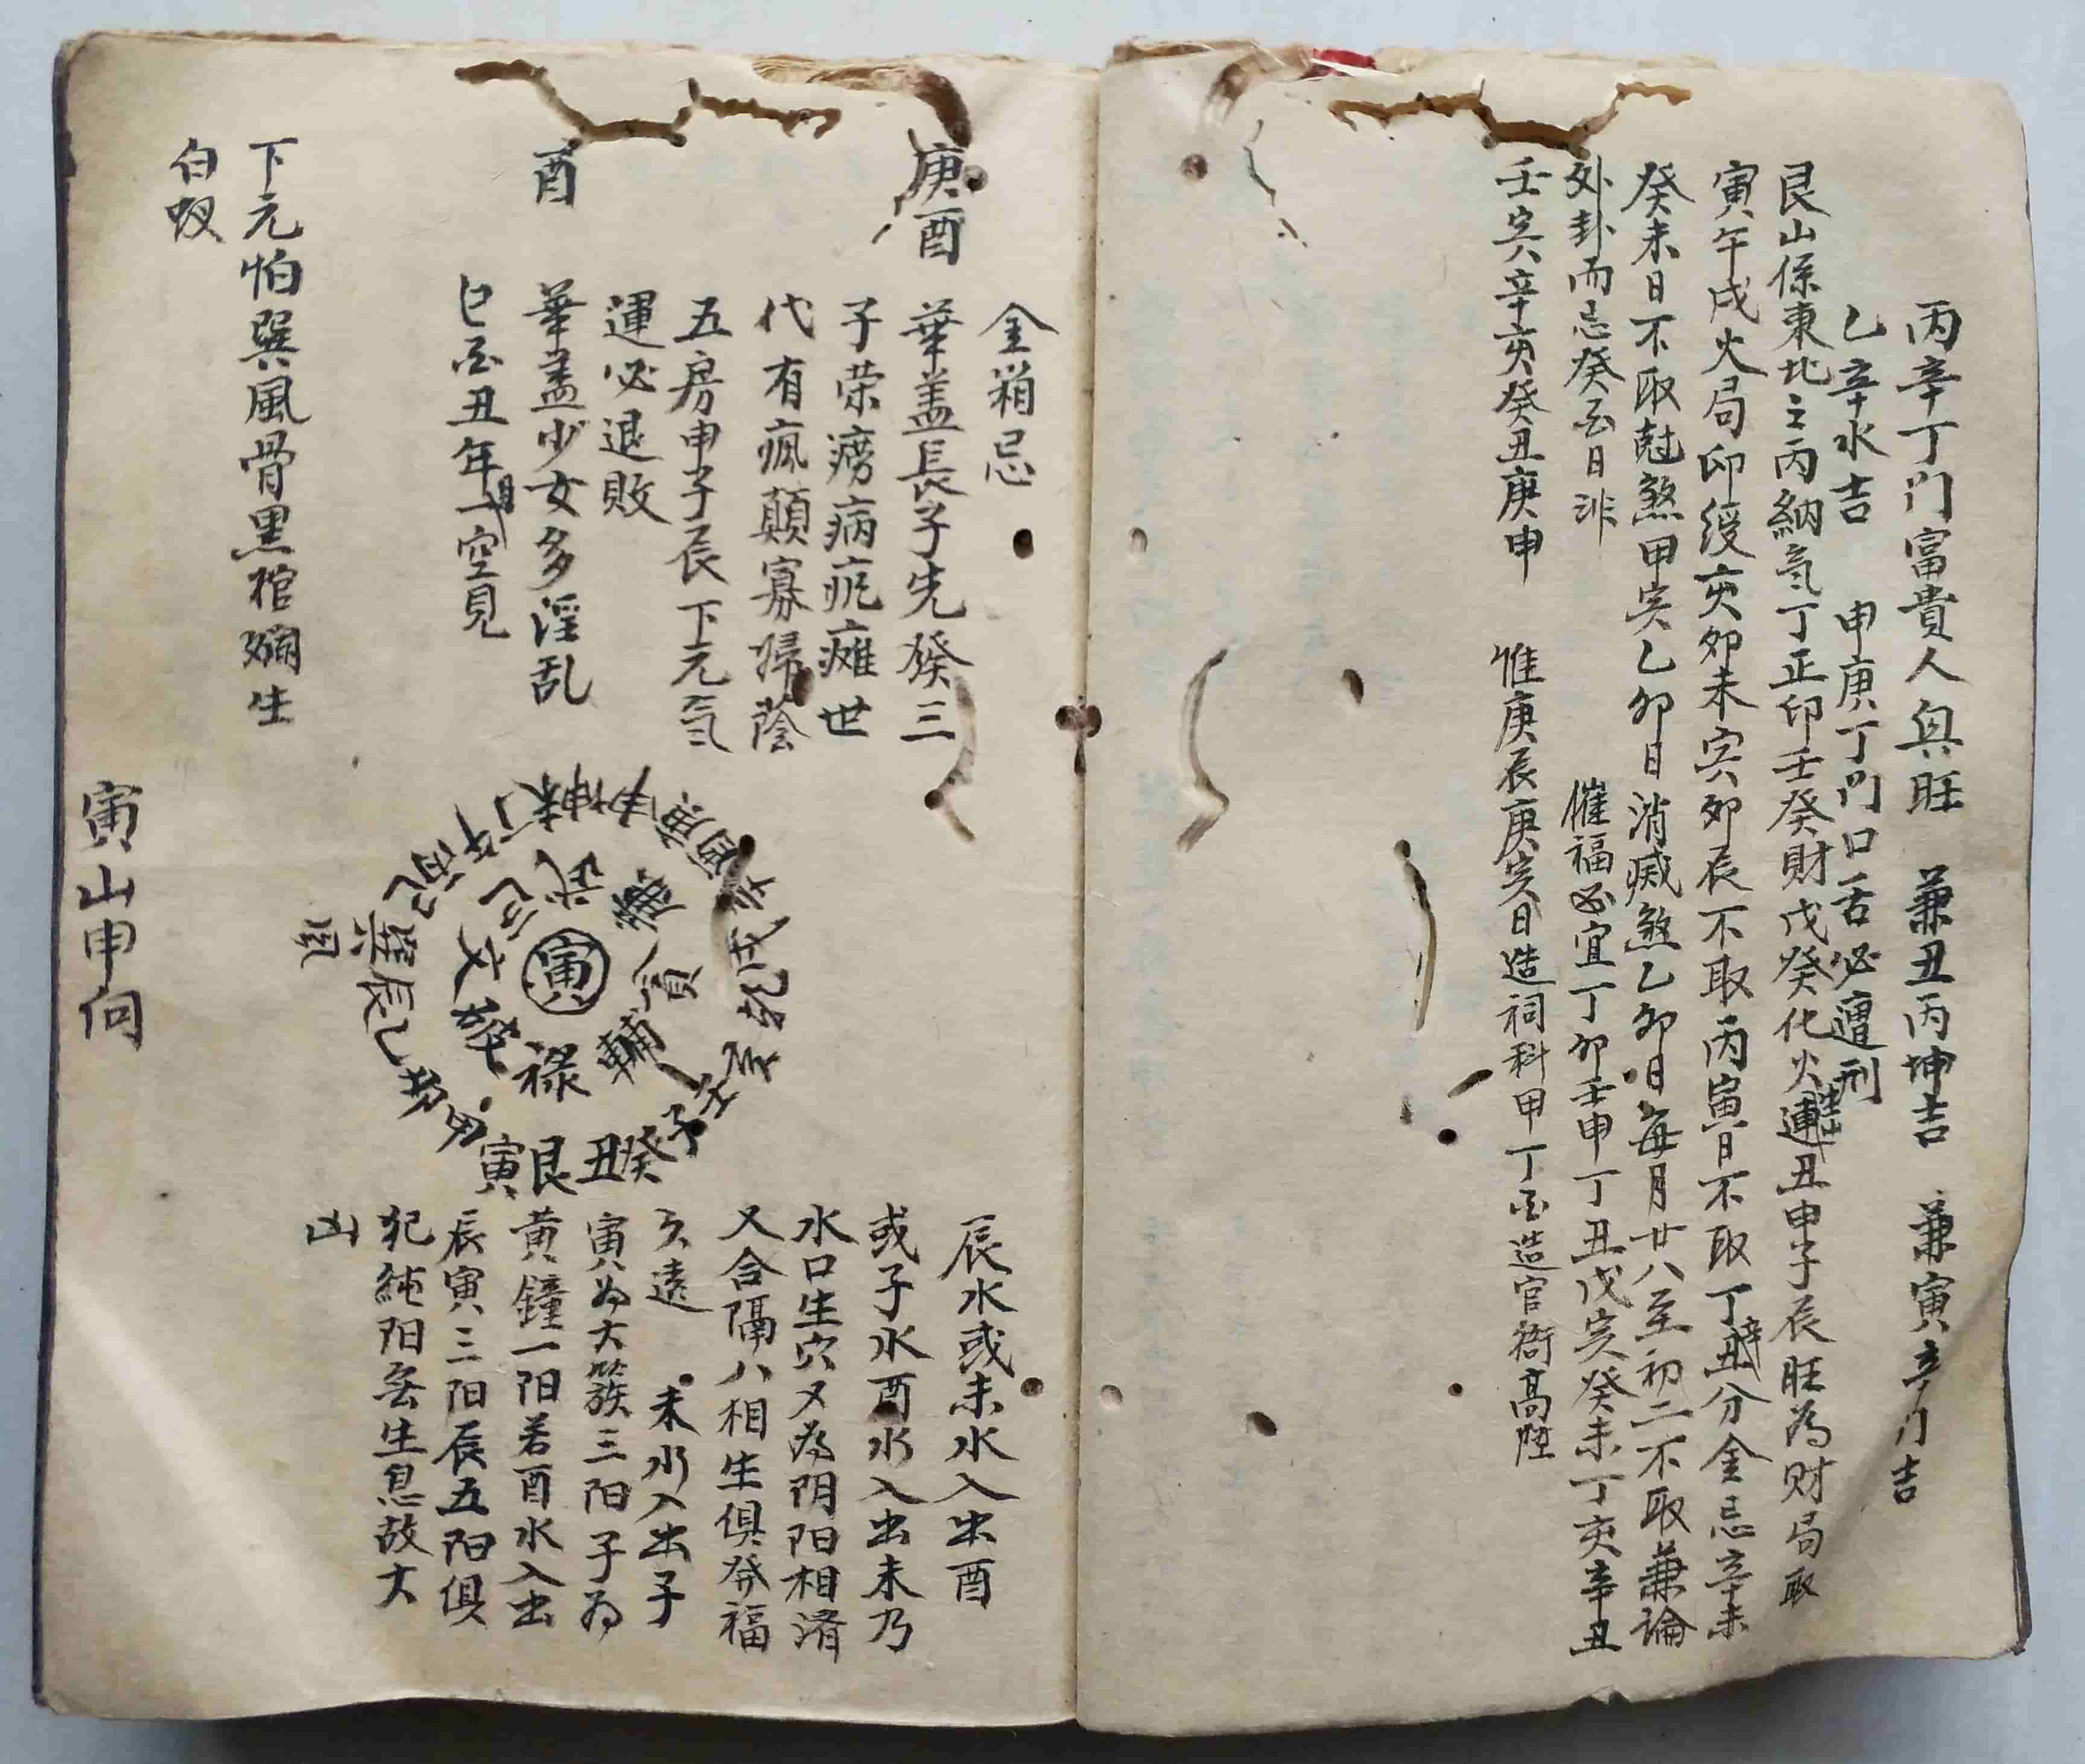 丙辛丁门富貴人興旺　兼丑丙坤吉　兼寅辛门吉
乙辛水吉　申庚丁门口舌必遭刑
艮山係東北之丙納氣丁正印壬癸財戊癸化火連丑申子辰旺為财局取
寅午戌火局印绶亥卯未寅卯辰不取丙寅日不取丁丑分金忌辛未
癸未日不取尅煞甲寅乙卯日消滅煞乙卯日每月廿八至初二不取兼論
外卦而忌癸酉日非　催福必宜丁卯壬申丁丑戊寅癸未丁亥辛丑
壬寅辛亥癸丑庚申　惟庚辰庚寅日造祠科甲丁酉造官衙高陞
金箱忌
庚酉　華盖長子先發三
子荣癆病疤瘫世
代有瘋顛寡婦蔭
五房申子辰下元氣
運必退敗
酉　華盖少女多淫乱
巳酉丑年月空見
下元怕巽風骨黑棺爛生
白蚁
寅
武
廉
貪
輔
禄
文
巨
坤申庚酉辛戌乾亥壬子癸丑艮寅甲卯乙辰巽巳丙午丁未
風
辰水或未水入出酉
或子水酉水入出未乃
水口生穴又為阴阳相済
又合隔八相生俱發福
久遠　未水入出子
寅为大簇三阳子为
黄鐘一阳若酉水入出
辰寅三阳辰五阳俱
犯純阳無生息故大
凶
寅山申向